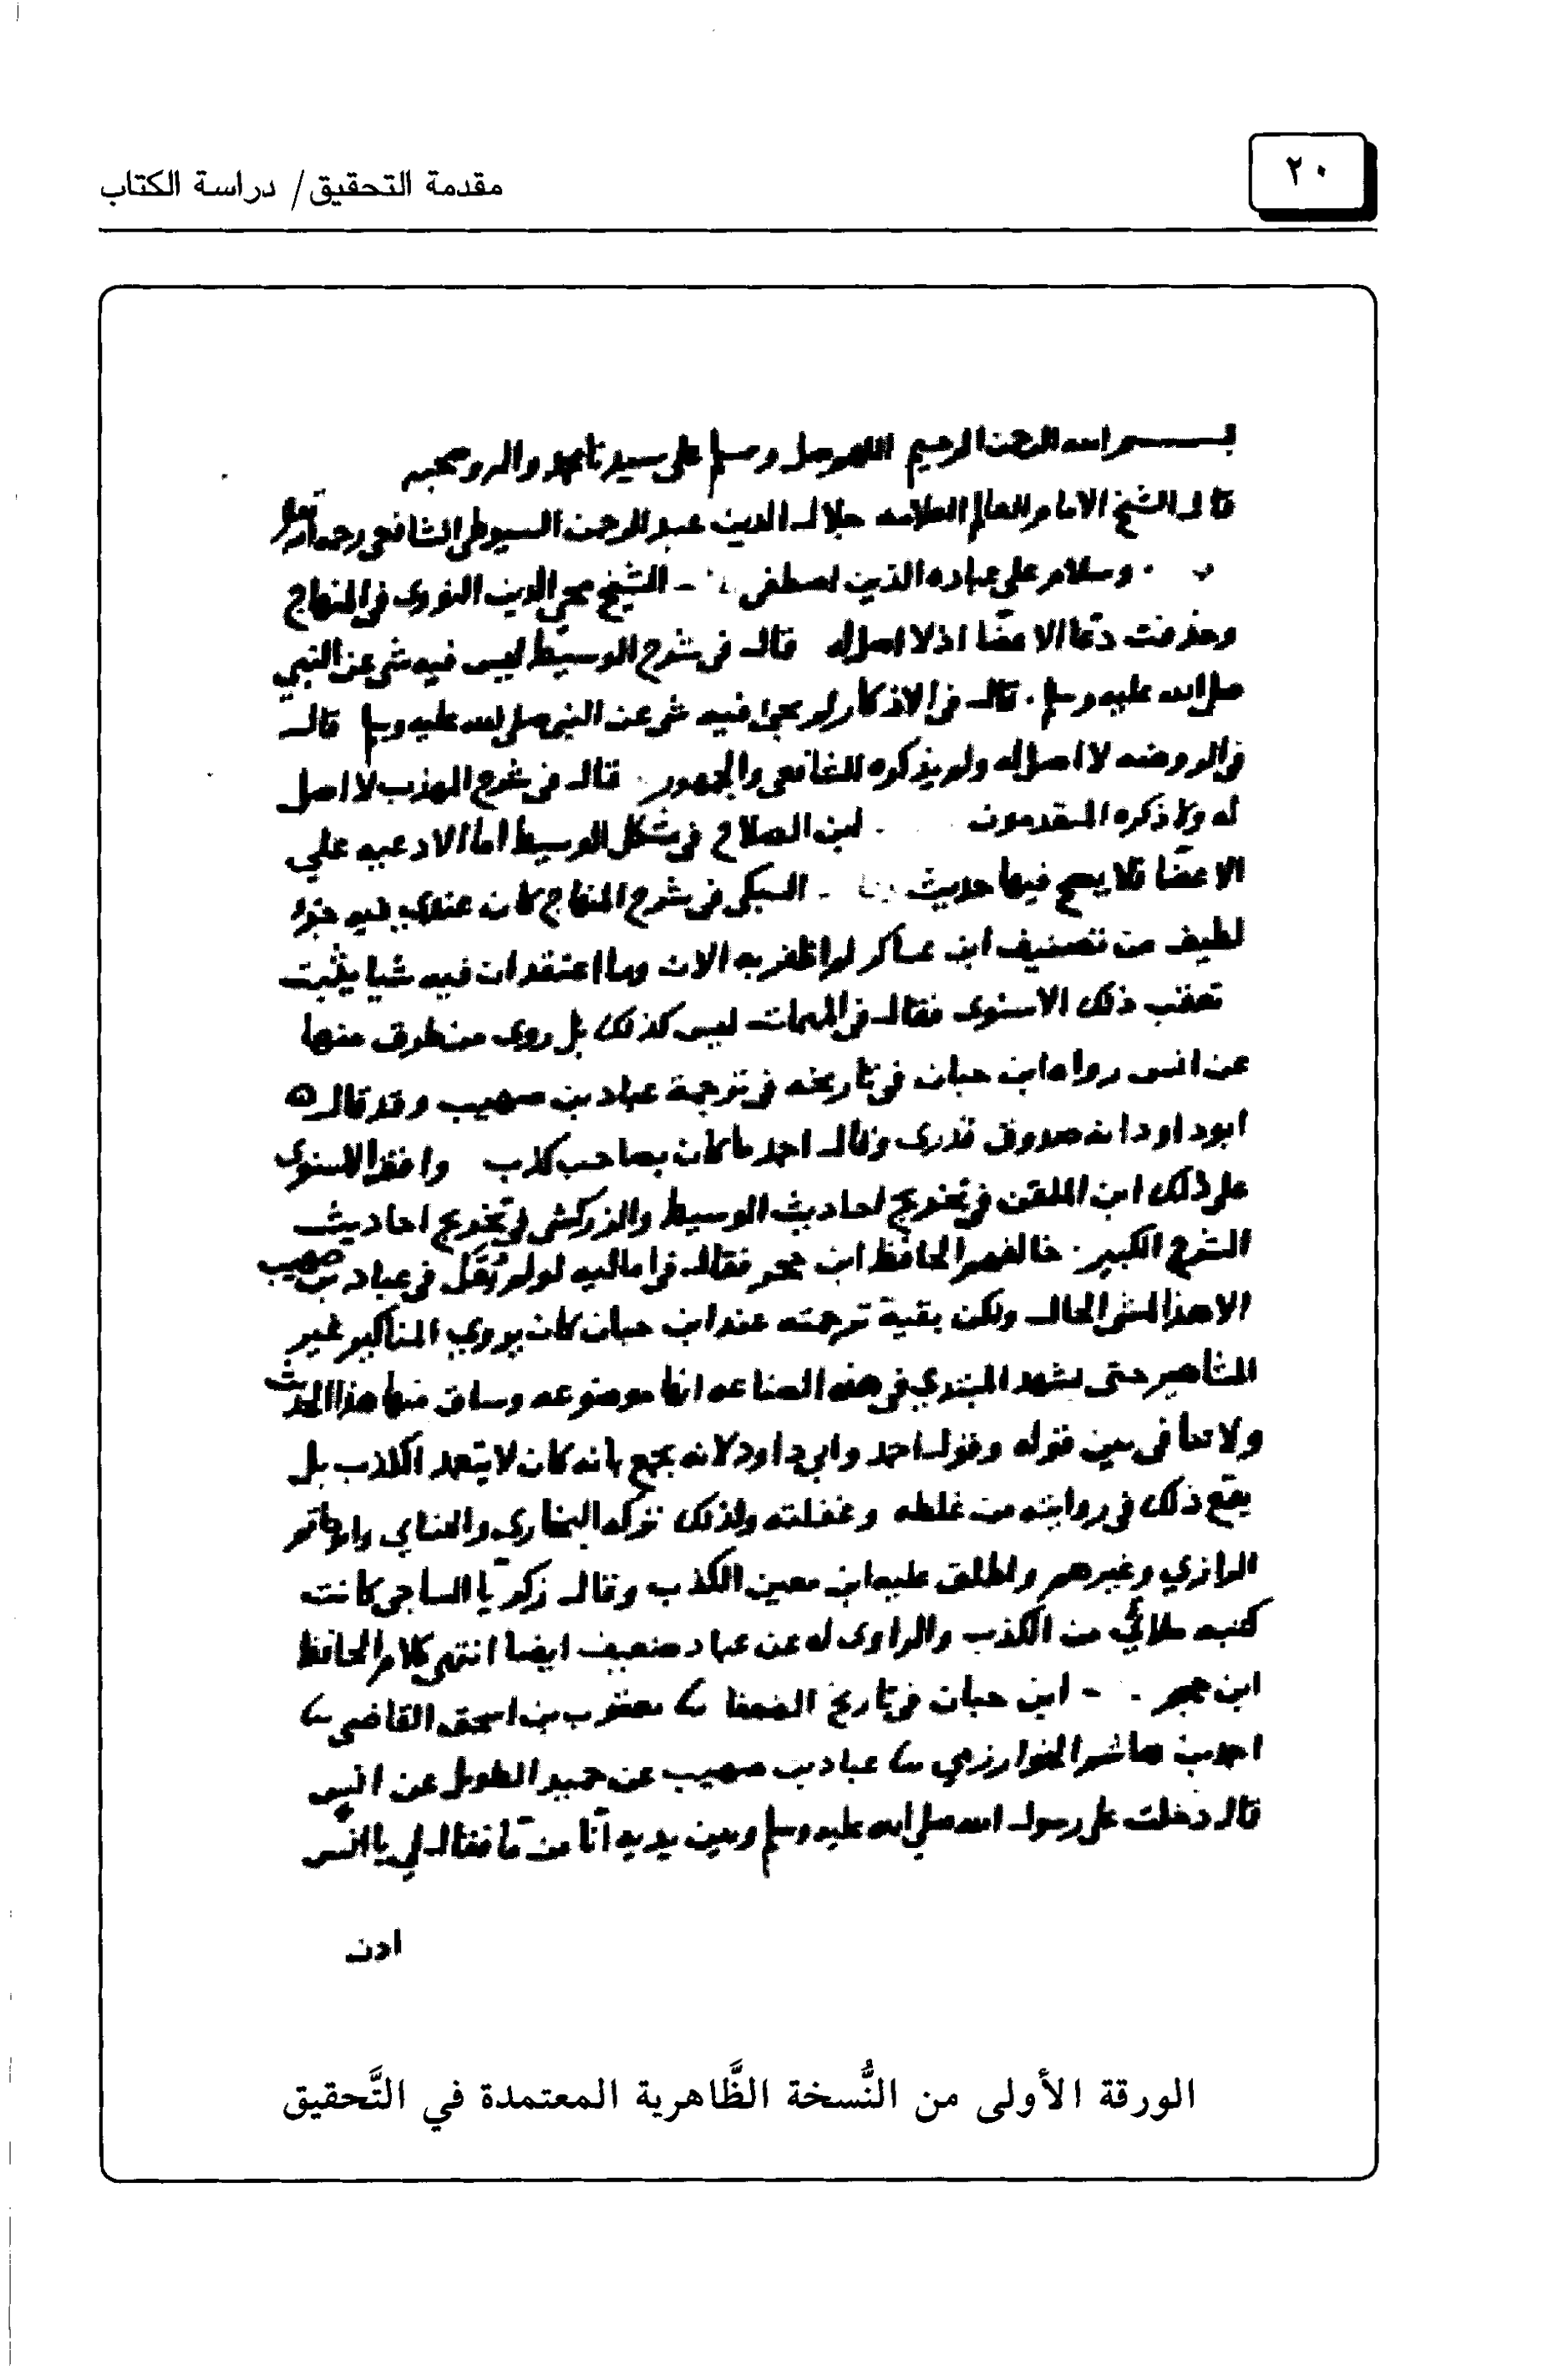 ٢٠
مقدمة التحقيق/ دراسة الكتاب
بسم الله الرحمن الرحيم اللهم صل وسلم على سيدنا محمد واله وصحبه
قال الشيخ الامام العالم العلامه جلال الدين عبد الرحمن السيوطي الشافعي رحمه الله تعالى
وسلام على عباده الذين اصطفى الشيخ محي الدين النووى فى المنهاج
وحذفت دعا الاعضا اذ لا اصل له قال فى شرح الوسيط ليس فيه شى عن النبي
صلى الله عليه وسلم . قال فى الاذكار لم يجئ فيه شى عن النبي صلى الله عليه وسلم قال
فى الروضه لا اصل له ولم يذكره الشافعى والجمهور . قال فى شرح المهذب لا اصل
له ولا ذكره المتقدمون ابن الصلاح فى مشكل الوسيط اما الادعيه علي
الاعضا فلا يصح فيها حديث السبكى فى شرح المنهاج كان عندي فيه جزء
لطيف من تصنيف ابن عساكر لم اظفر به الان وما اعتقد ان فيه شيا يثبت
تعقب ذلك الاسنوى فقال فى المهمات ليس كذلك بل روى من طرق منها
عن انس رواه ابن حبان فى تاريخه فى ترجمة عباد بن صهيب وقد قال
ابو داود انه صدوق قدرى وقال احمد ما كان بصاحب كذب وافق الاسنوى
على ذلك ابن الملقن فى تخريج احاديث الوسيط والزركشى فى تخريج احاديث
الشرح الكبير . خالفهم الحافظ ابن حجر فقال فى اماليه لو لم يُقَل فى عباد بن صهيب
الا هذا لمشى الحال ولكن بقية ترجمته عند ابن حبان كان يروي المناكير عن
المشاهير حتى يشهد المبتدي فى هذه الصناعه انها موضوعه وساق منها هذا الحديث
ولا تنافى بين قوله وقول احمد وابي داود لانه يجمع بانه كان لا يتعمد الكذب بل
يقع ذلك في روايته من غلطه وغفلته ولذلك تركه البخارى والنساي وابو حاتم
الرازي وغيرهم واطلق عليه ابن معين الكذب وقال زكريا الساجى كانت
كتبه ملائي من الكذب والراوى له عن عباد ضعيف ايضا انتهى كلام الحافظ
ابن حجر . ابن حبان فى تاريخ الضعفا يعقوب بن اسحق القاضى
احمد بن هاشم الخوارزمي عباد بن صهيب عن حميد الطويل عن انس
قال دخلت على رسول الله صلي الله عليه وسلم وبين يديه انا من ما فقال لي يا انس
ادن
الورقة الأولى من النُّسخة الظَّاهرية المعتمدة في التَّحقيق